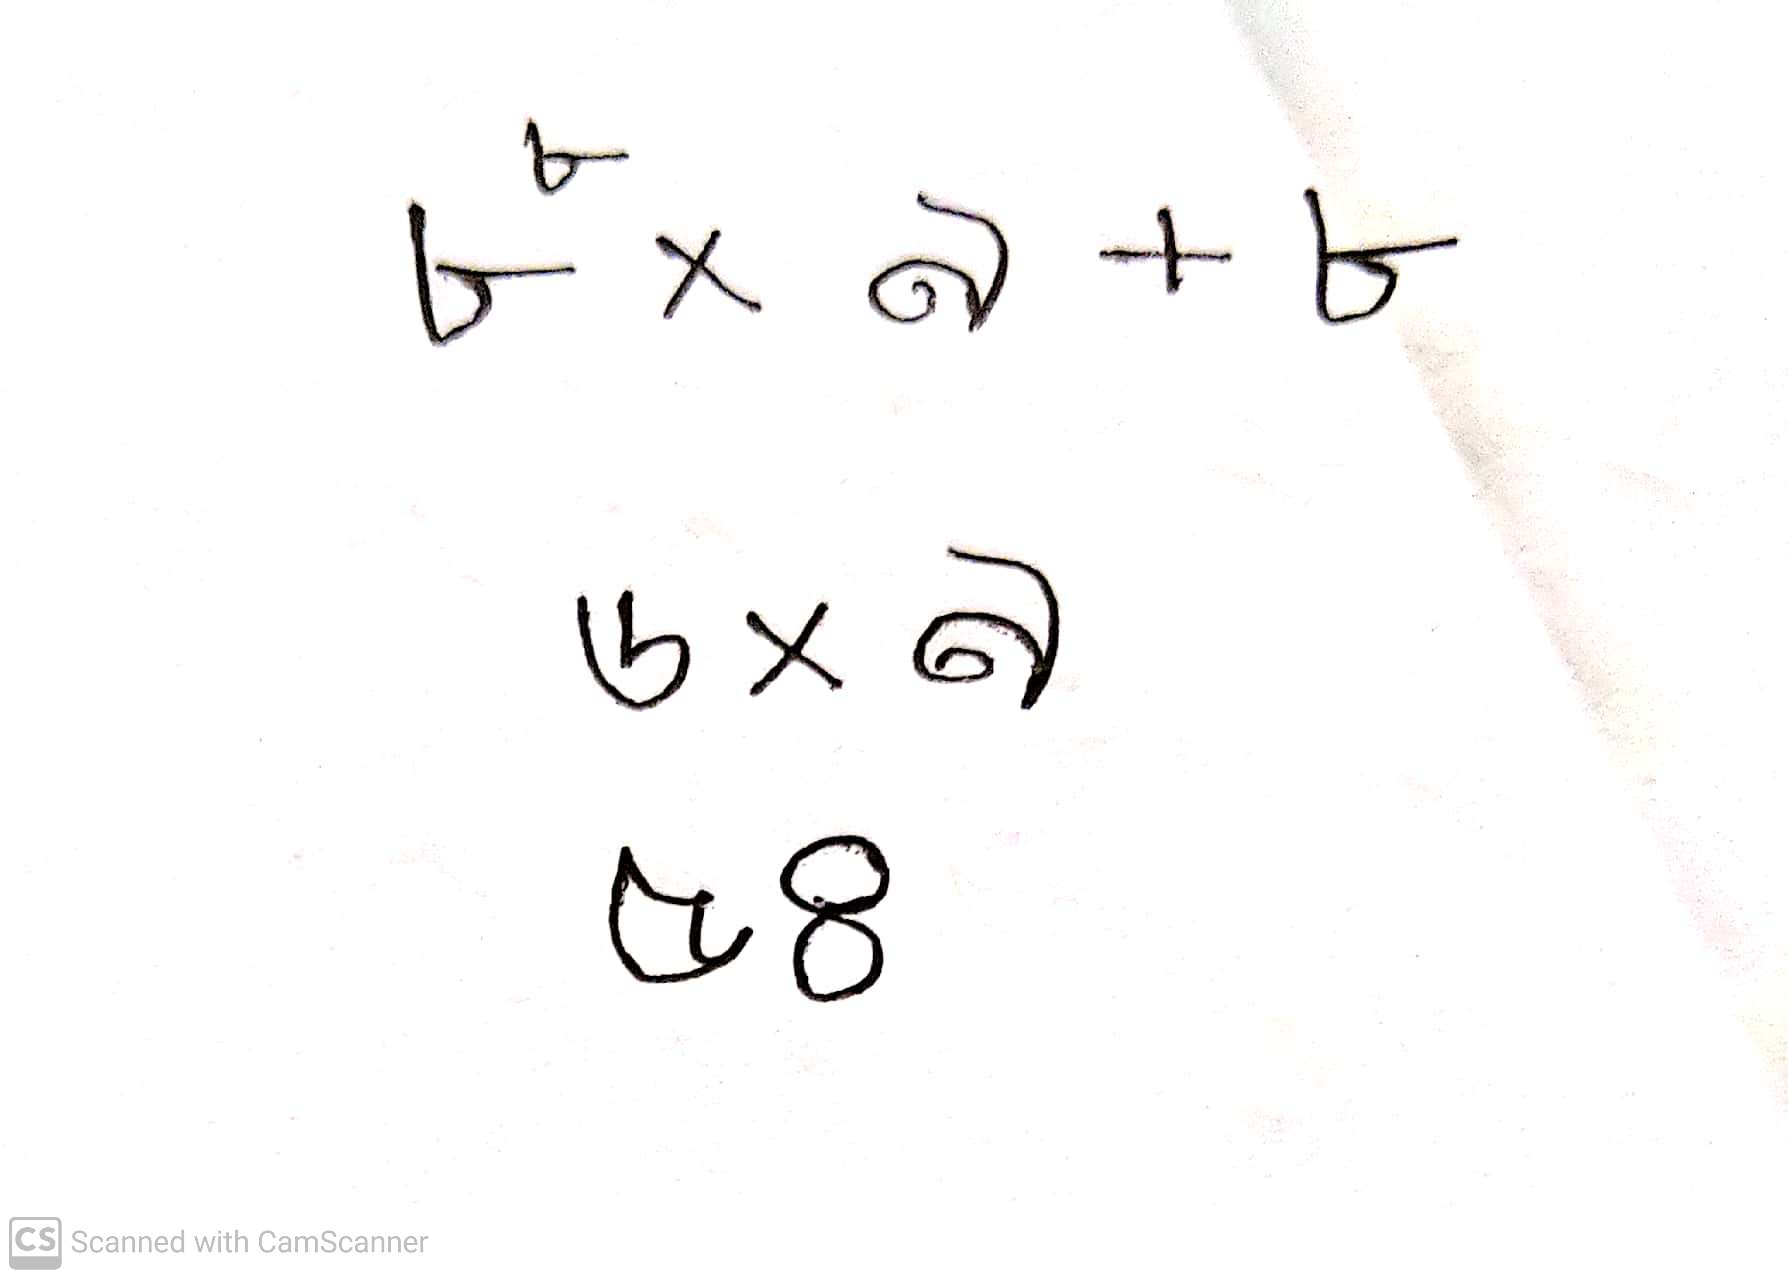 ৮^৮ × ৯ + ৮
৬ × ৯
৫৪
CS Scanned with CamScanner